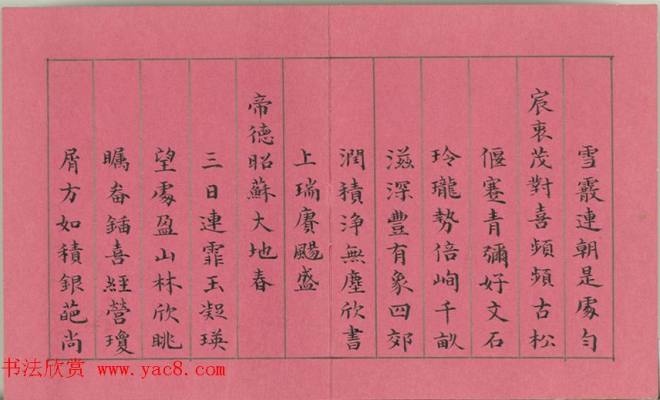 雪霰連朝是處勻
宸衷茂對喜頻頻古松
偃蹇青彌好文石
玲瓏勢倍峋千畝
滋深豐有象四郊
潤積淨無塵欣書
上瑞賡颺盛
帝德昭蘇大地春
三日連霏玉凝瑛
望處盈山林欣眺
矚畚鍤喜經營瓊
屑方如積銀葩尚
书法欣赏 www.yac8.com